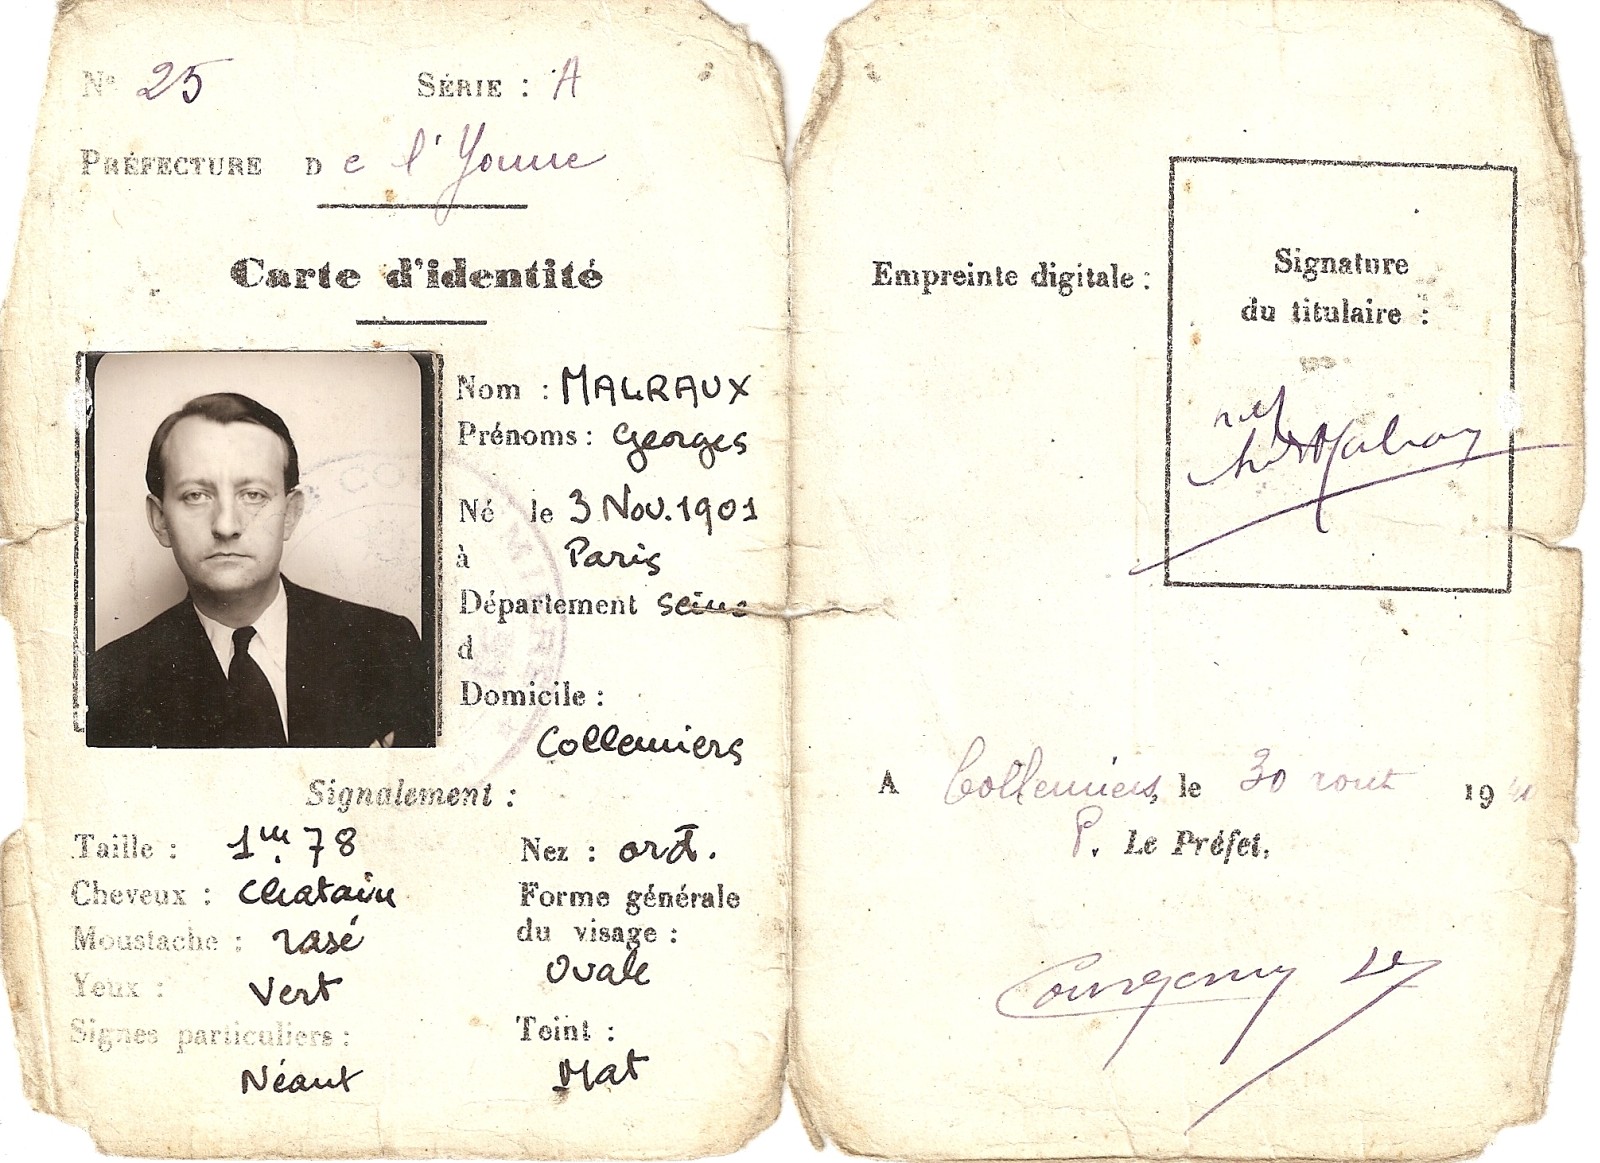 N° 25 SÉRIE : A
PRÉFECTURE D e l'Yonne
Carte d'identité
Nom : MALRAUX
Prénoms : Georges
Né le 3 Nov. 1901
à Paris
Département Seine
d
Domicile :
Collemiers
Signalement :
Taille : 1m. 78
Cheveux : Chatain
Moustache : rasé
Yeux : Vert
Signes particuliers :
Néant
Nez : ord.
Forme générale
du visage :
Ovale
Teint :
Mat
Empreinte digitale :
Signature
du titulaire :
Malraux
A Collemiers, le 30 aout 1940
P. Le Préfet,